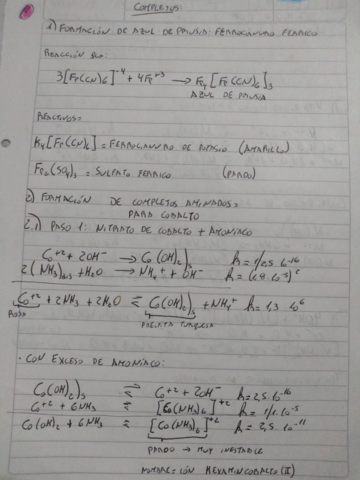 COMPLEJOS
1) FORMACIÓN DE AZUL DE PRUSIA: FERROCIANURO FERRICO
REACCIÓN
3[Fe(CN)6]-4 + 4Fe+3 → Fe4[Fe(CN)6]3
AZUL DE PRUSIA
REACTIVOS:
K4[Fe(CN)6] = FERROCIANURO DE POTASIO (AMARILLO)
Fe2(SO4)3 = SULFATO FERRICO (PARDO)
2) FORMACIÓN DE COMPLEJOS AMONIADOS:
PARA COBALTO
2.1) PASO 1: NITRATO DE COBALTO + AMONÍACO
Co+2 + 2OH- → Co(OH)2)s k = 1/2,5.10-16
+ H2O → NH4+ + OH-
Co+2 + 2NH3 + 2H2O ⇌ Co(OH)2)s + NH4+ k = 1,3.106
PRECIPITA TURQUESA
- CON EXCESO DE AMONÍACO:
Co(OH)2)s ⇌ Co+2 + 2OH- k = 2,5.10-16
Co+2 + 6NH3 ⇌ [Co(NH3)6]+2
Co(OH)2 + 6NH3 ⇌ [Co(NH3)6]+2 k = 2,5.10-11
PARDO → MUY INESTABLE
NOMBRE: IÓN HEXAMINCOBALTO (II)